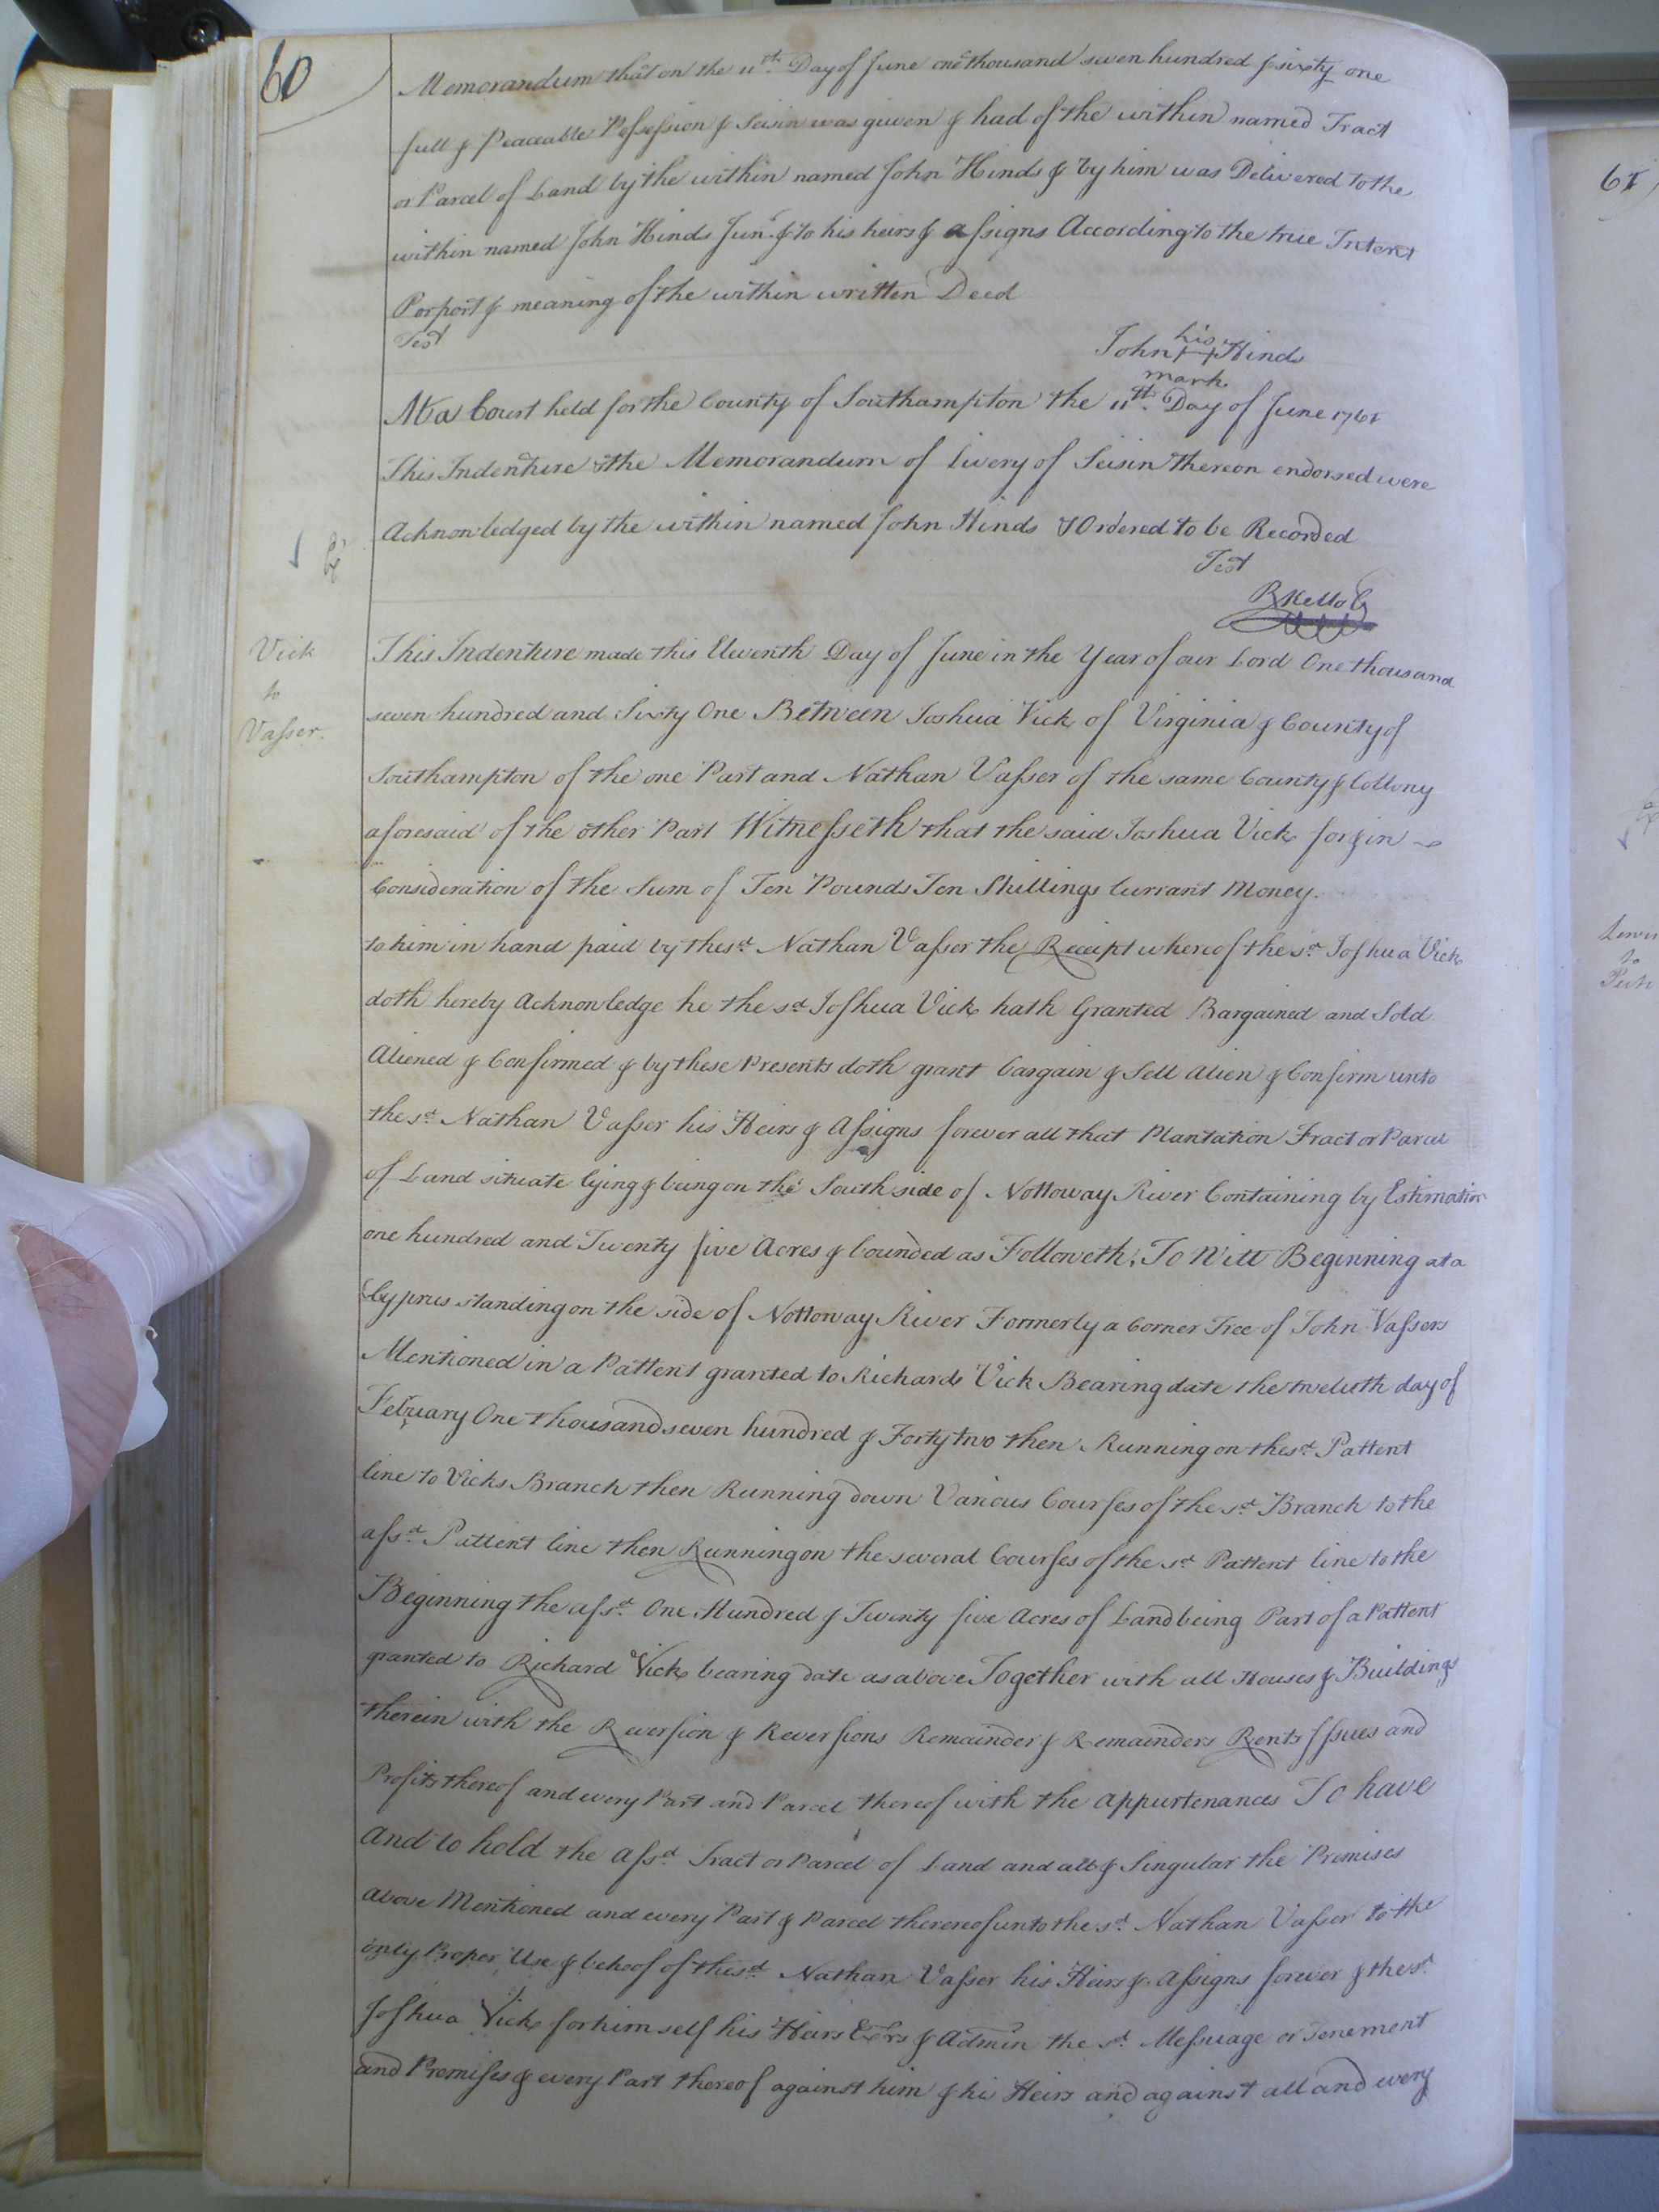 60
Memorandum that on the 11th. Day of June one thousand seven hundred & sixty one
full & Peaceable Possession & Seisin was given & had of the within named Tract
or Parcel of Land by the within named John Hinds & by him was Delivered to the
within named John Hinds Junr. & to his heirs & assigns According to the true Intent
Porport & meaning of the within written Deed
Test
his
John ++ Hinds
mark
At a Court held for the County of Southampton the 11th. Day of June 1761
This Indenture & the Memorandum of Livery of Seisin thereon endorsed were
Acknowledged by the within named John Hinds & Ordered to be Recorded
Test
R Kello C
Vick
to
Vasser.
This Indenture made this Eleventh Day of June in the Year of our Lord One thousand
seven hundred and Sixty One Between Joshua Vick of Virginia & County of
Southampton of the one Part and Nathan Vasser of the same County & Collony
aforesaid of the other Part Witnesseth that the said Joshua Vick for & in
Consideration of the Sum of Ten Pounds Ten Shillings Currant Money.
to him in hand paid by the sd. Nathan Vasser the Receipt whereof the sd. Joshua Vick
doth hereby Acknowledge he the sd. Joshua Vick hath Granted Bargained and Sold
Aliened & Confirmed & by these Presents doth grant bargain & Sell Alien & Confirm unto
the sd. Nathan Vasser his Heirs & Assigns forever all that Plantation Tract or Parcel
of Land situate lying & being on the South side of Nottoway River Containing by Estimation
one hundred and Twenty five Acres & bounded as Followeth; To Witt Beginning at a
Cyprus standing on the side of Nottoway River Formerly a Corner Tree of John Vassers
Mentioned in a Pattent granted to Richard Vick Bearing date the twelvth day of
February One thousand seven hundred & Forty two then Running on the sd. Pattent
line to Vicks Branch then Running down Various Courses of the sd. Branch to the
afsd. Pattent line then Running on the several Courses of the sd. Pattent line to the
Beginning the afsd. One Hundred & Twenty five Acres of Land being Part of a Pattent
granted to Richard Vick bearing date as above Together with all Houses & Buildings
therein with the Reversion & Reversions Remainder & Remainders Rents Issues and
Profits thereof and every Part and Parcel thereof with the appurtenances To have
And to hold the afsd. Tract or Parcel of Land and all & Singular the Premises
above Mentioned and every Part & Parcel thereof unto the sd. Nathan Vasser to the
only Proper Use & behoof of the sd. Nathan Vasser his Heirs & Assigns forever & the sd.
Joshua Vick for himself his Heirs Exrs & Admin the sd. Messuage or Tenement
and Premises & every Part thereof against him & his Heirs and against all and every
61
to